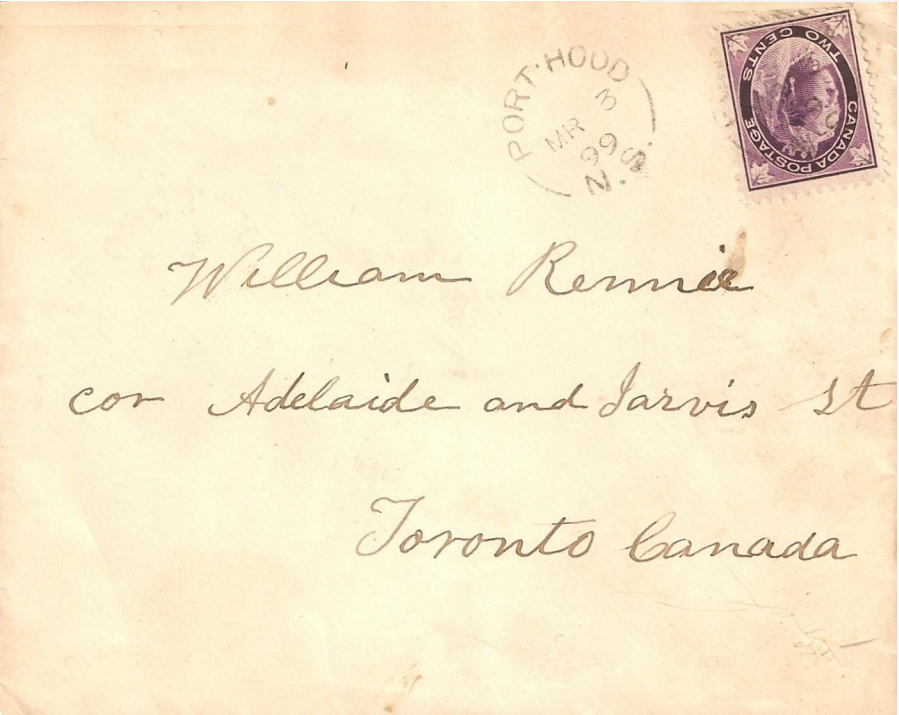 PORT HOOD
MR 3
99
N.S.
TWO CENTS
CANADA POSTAGE
William Rennie
cor Adelaide and Jarvis St
Toronto Canada